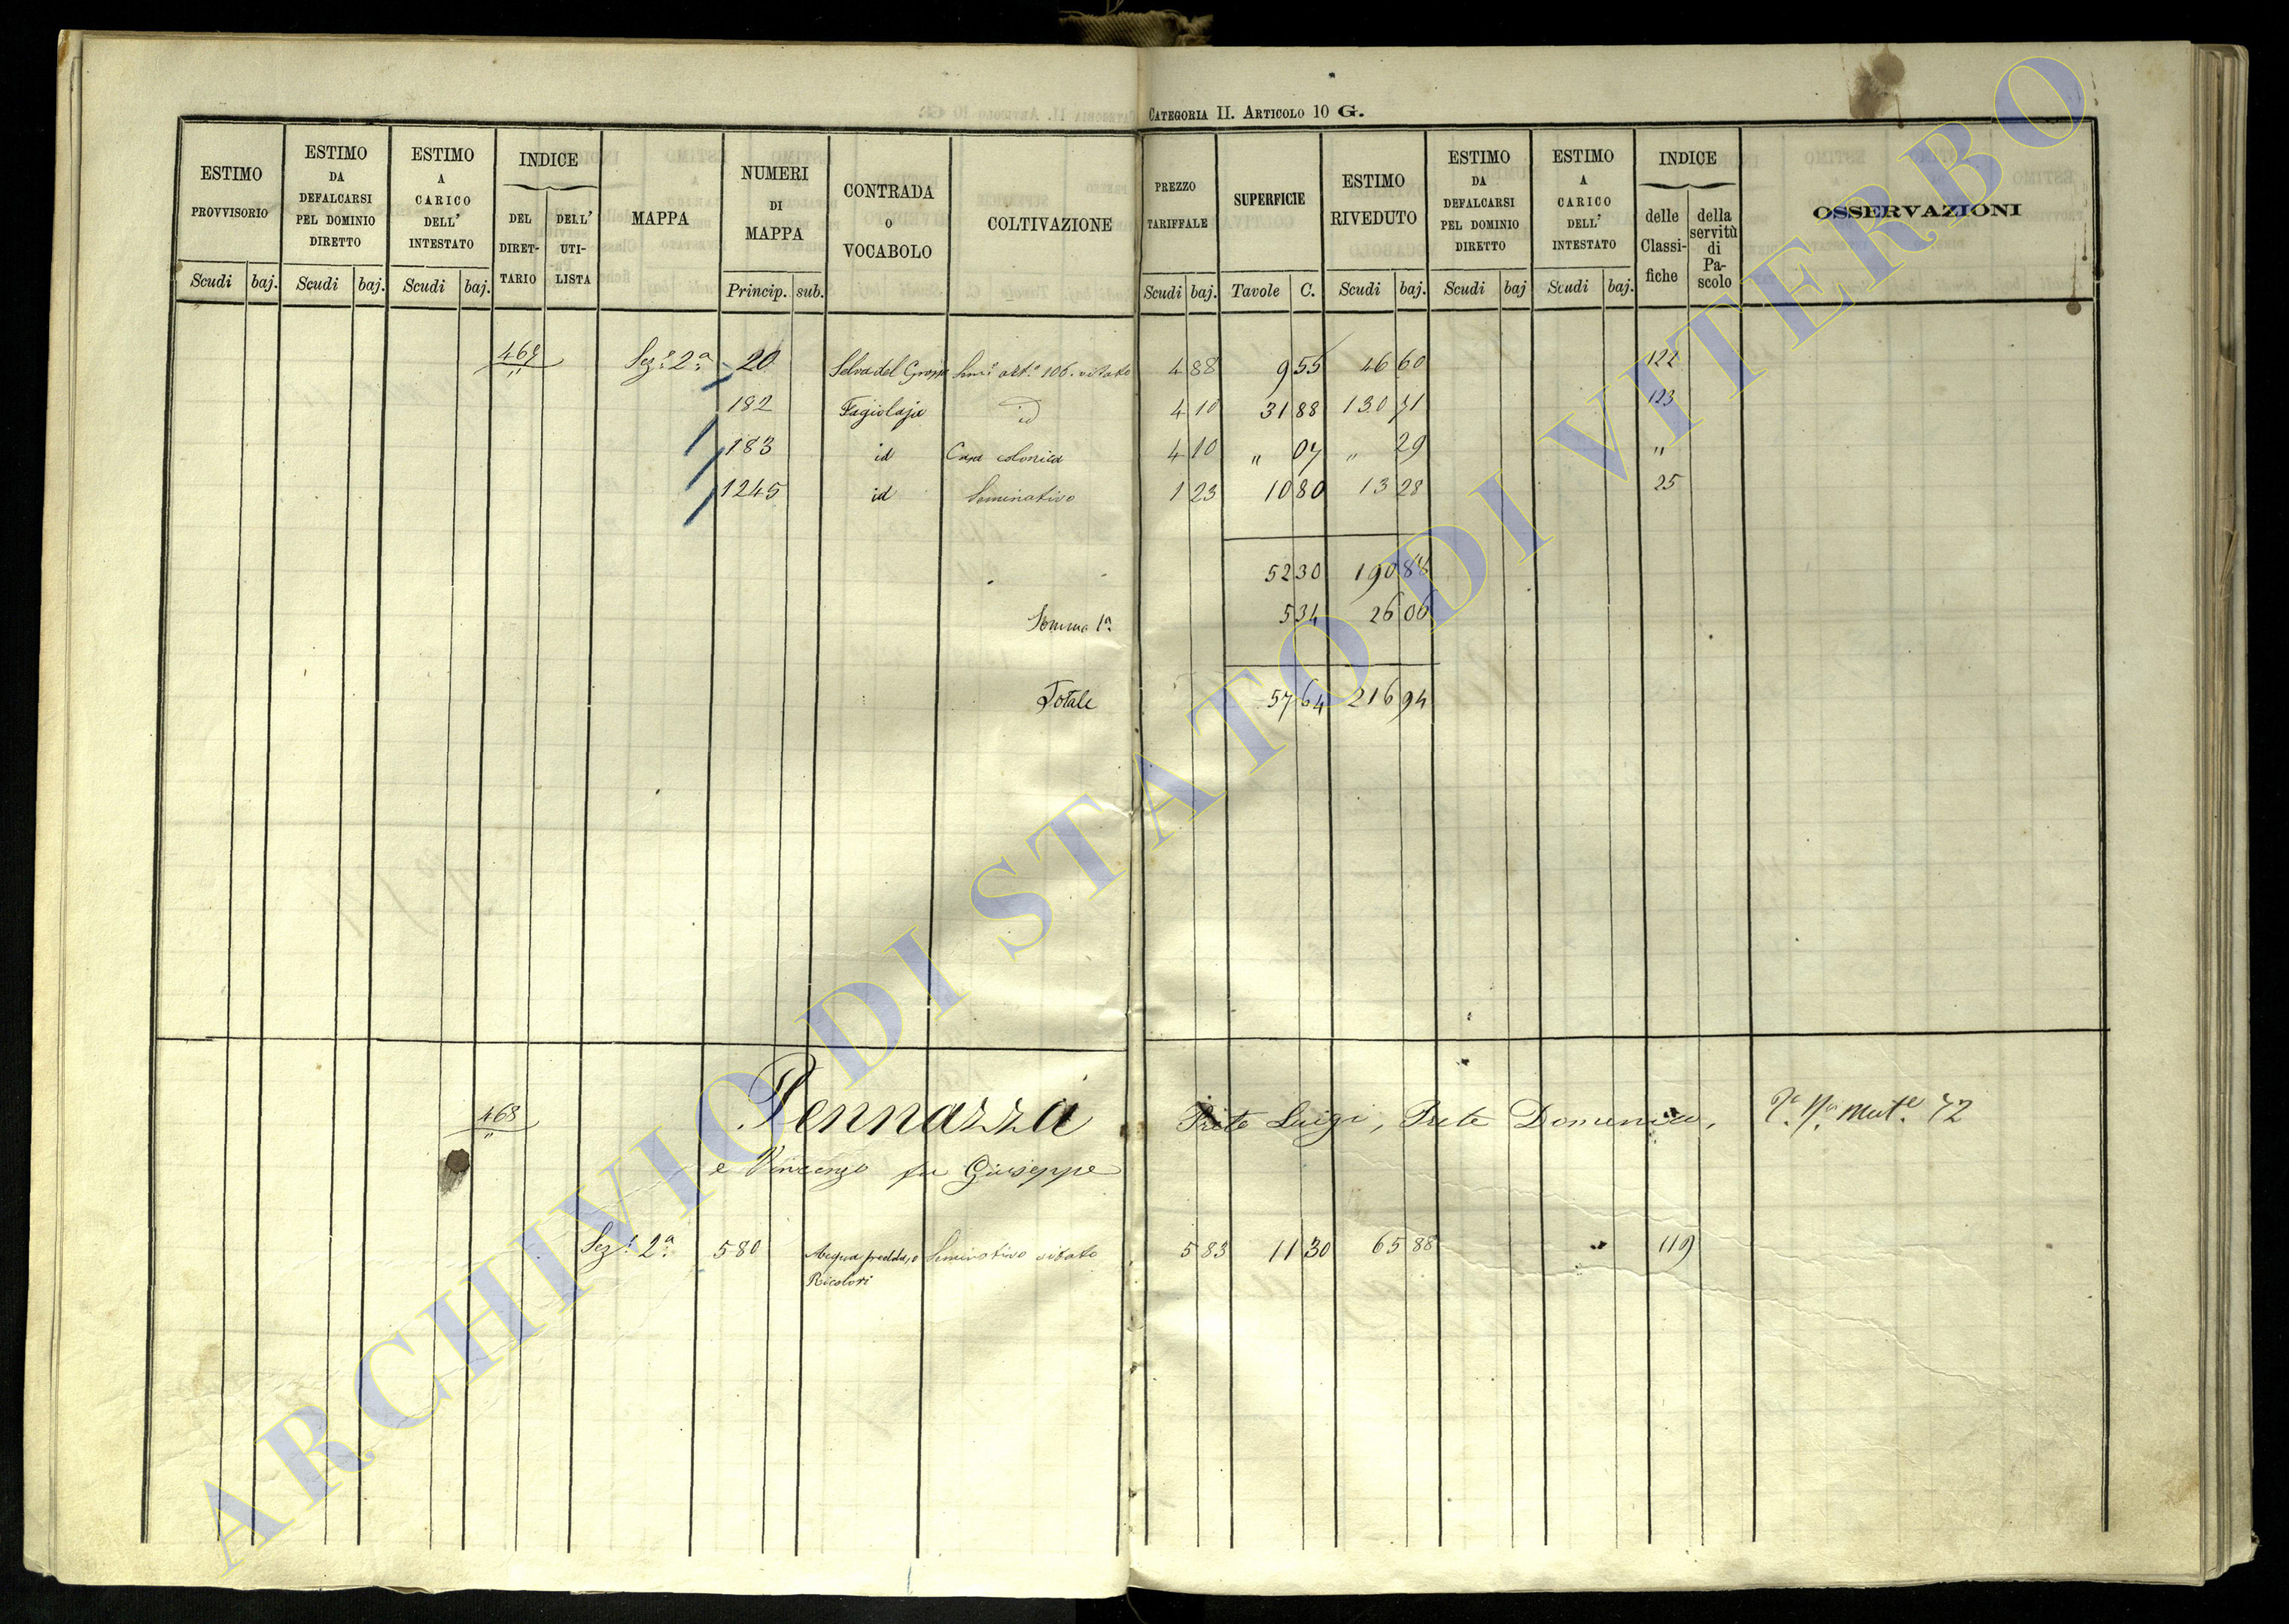 CATEGORIA II. ARTICOLO 10 G.
ESTIMO PROVVISORIO Scudi baj.
ESTIMO DA DEFALCARSI PEL DOMINIO DIRETTO Scudi baj.
ESTIMO A CARICO DELL' INTESTATO Scudi baj.
INDICE DEL DIRET-TARIO DELL' UTI-LISTA
MAPPA
NUMERI DI MAPPA Princip. sub.
CONTRADA o VOCABOLO
COLTIVAZIONE
PREZZO TARIFFALE Scudi baj.
SUPERFICIE Tavole C.
ESTIMO RIVEDUTO Scudi baj.
ESTIMO DA DEFALCARSI PEL DOMINIO DIRETTO Scudi baj
ESTIMO A CARICO DELL' INTESTATO Scudi baj.
INDICE delle Classi-fiche della servitù di Pa-scolo
OSSERVAZIONI
Sez.e 2a 20 Selva del 4 88 9 55 46 60 122
182 Fagiolaja id 4 10 31 88 130 71 123
183 id Casa colonica 4 10 " 07 " 29 "
1245 id Seminativo 1 23 10 80 13 28 25
52 30 190 88
Somma 1a 5 34 26 06
Totale 57 64 216 94
468 Pennazza Prete Luigi, Prete Domenico, 72
e Vincenzo fu Giuseppe
Sez.e 2a 580 Acqua fredda, o Seminativo vitato 5 83 11 30 65 88 " 119
Ricolori
ARCHIVIO DI STATO DI VITERBO